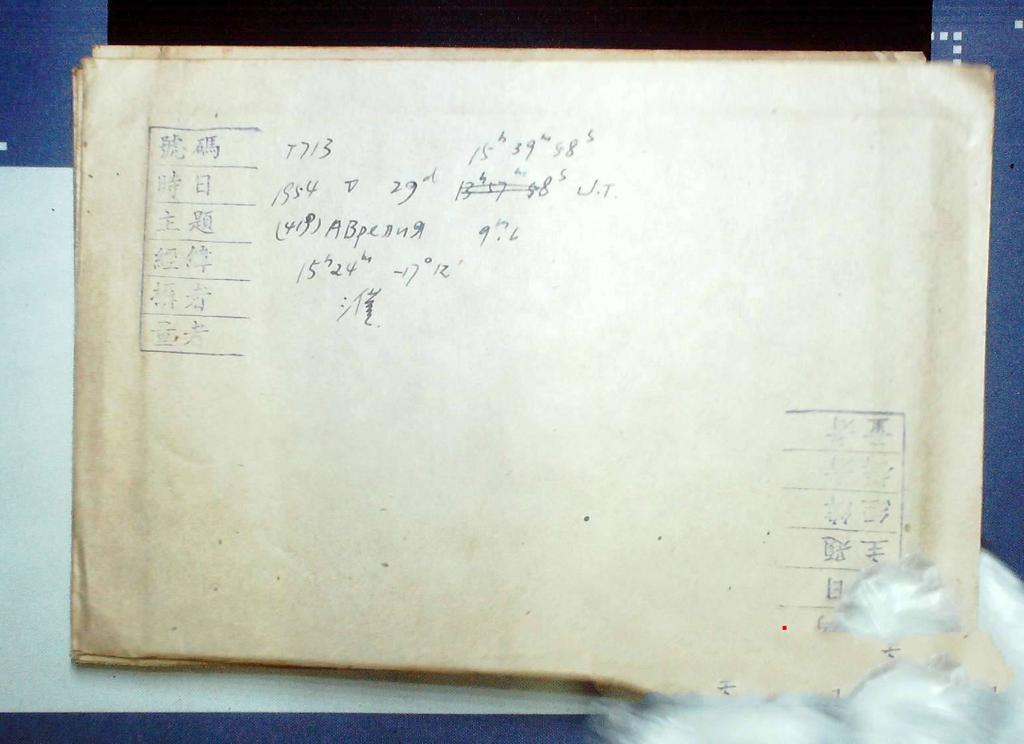 號碼 T713 15ʰ 39ᵐ 58ˢ
時日 1954 V 29ᵈ 13ʰ 57ᵐ 58ˢ U.T.
主題 (419) АВрелия 9ᵐ.6
經緯 15ʰ24ᵐ -17°12'
攝者
量者
量者
攝者
經緯
主題
日